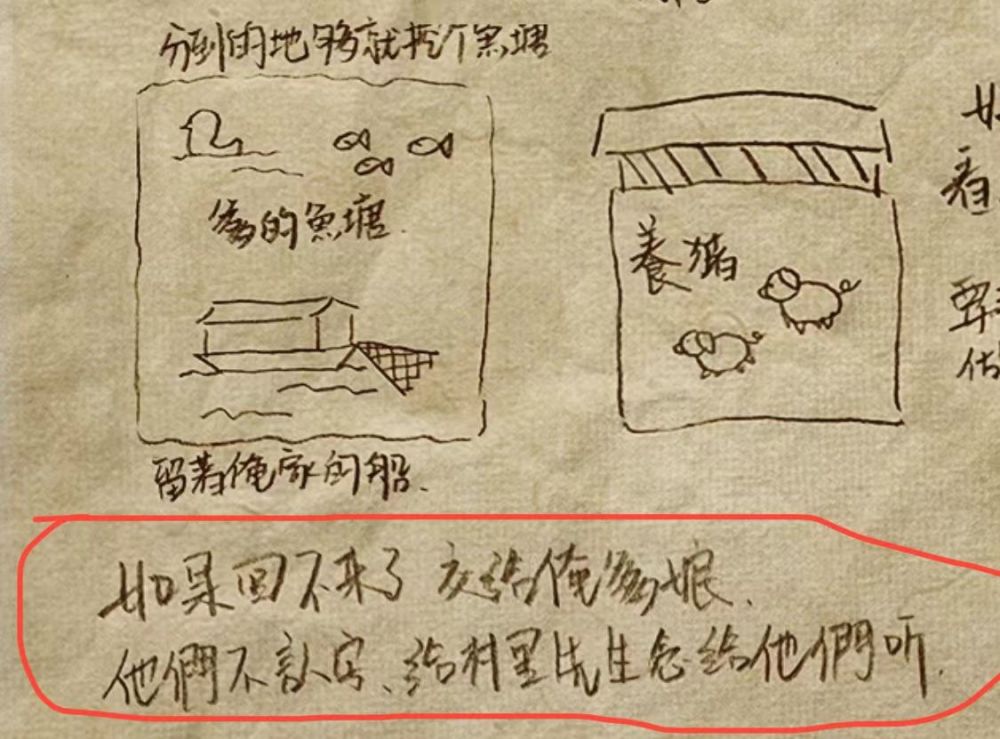 分到的地够就挖个魚塘
爹的魚塘
養猪
留着俺家的船.
如果回不来了 交给俺爹娘.
他們不認字、给村里先生念给他們听.
看